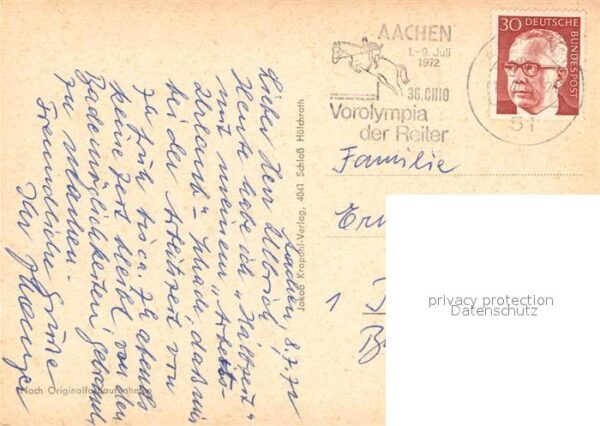 AACHEN
1.-9. Juli
1972
36. CHIO
Vorolympia
der Reiter
30 DEUTSCHE
BUNDESPOST
51
Familie
1
privacy protection
Datenschutz
Jakob Krapohl-Verlag, 4041 Schloß Hülchrath
Aachen, 8.7.72
Lieber Herr Ulbrich,
Heute habe ich "Halbzeit"
mit meinem "Arbeits-
Urlaub" - schade, daß mir
bei der Arbeitszeit von
7h früh bis ca 7h abends
keine Zeit bleibt von den
Bademöglichkeiten Gebrauch
zu machen.
Freundliche Grüße
Ihr
Nach Originalfarbaufnahmen